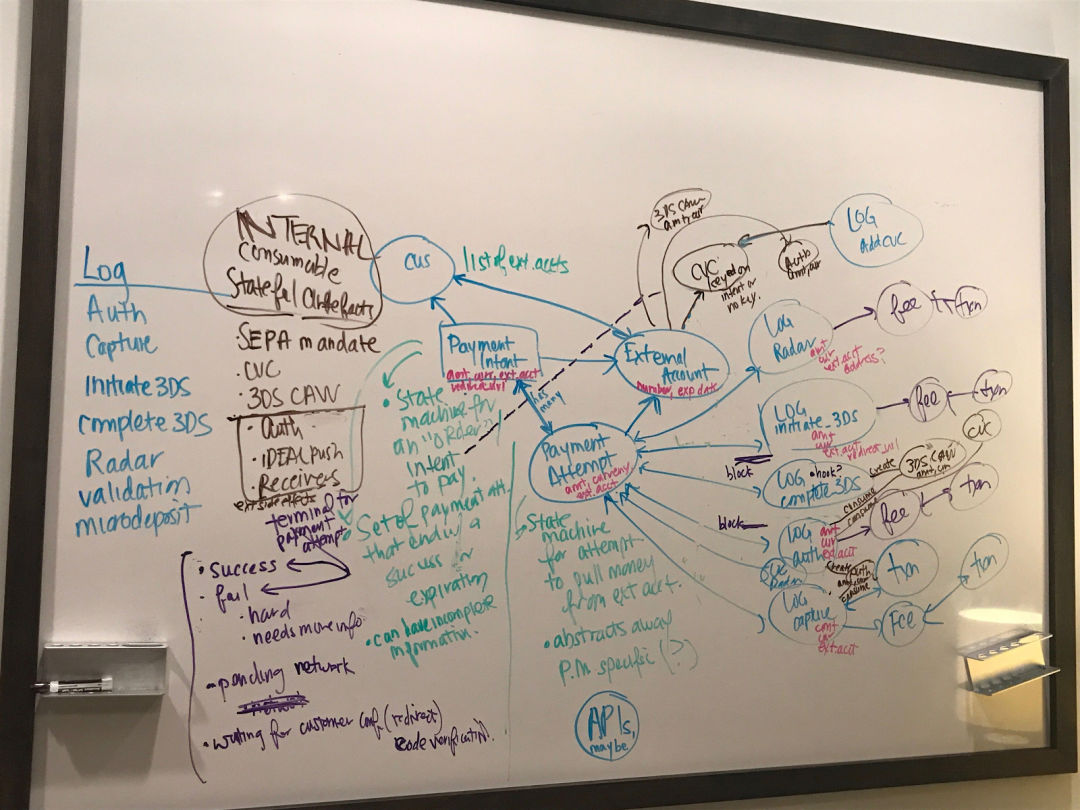 Log
Auth
Capture
Initiate 3DS
complete 3DS
Radar
validation
microdeposit
INTERNAL
Consumable
Stateful Artefacts
SEPA mandate
· CVC
· 3DS CAVV
· Auth
· IDEAL push
· Receivers
ext side effects
terminal for
payment
attempt
· success
· fail
· hard
· needs more info
- pending network
· waiting for customer conf. (redirect)
code verification).
cus
list of ext. accts
Payment
Intent
amt, curr, ext. acct
redirect url
has
many
• State
machine for
an "order"/
Intent
to pay.
Set of payment att.
that end in a
success or
expiration
• can have incomplete
information.
External
Account
number, exp date
Payment
Attempt
amt, currency,
ext. acct
State
machine
for attempt
to pull money
from ext acct.
• abstracts away
P.M specific (?)
APIs,
maybe
3DS CAVV
amt, cur
CVC
keyed on
intent or
no key.
Auth
amt, cur
LOG
add CVC
LOG
Radar
amt
cur
ext. acct
address?
fee
txn
LOG
initiate_3DS
amt
cur
ext. acct
redirect_url
fee
txn
block
LOG • hook?
complete_3DS
create
3DS CAVV
amt, cur
cvc
consume
consume
block
LOG
auth
amt
cur
ext. acct
fee
txn
CVC
Radar
create
auth
consume
txn
LOG
capture
amt
cur
ext. acct
Fee
txn